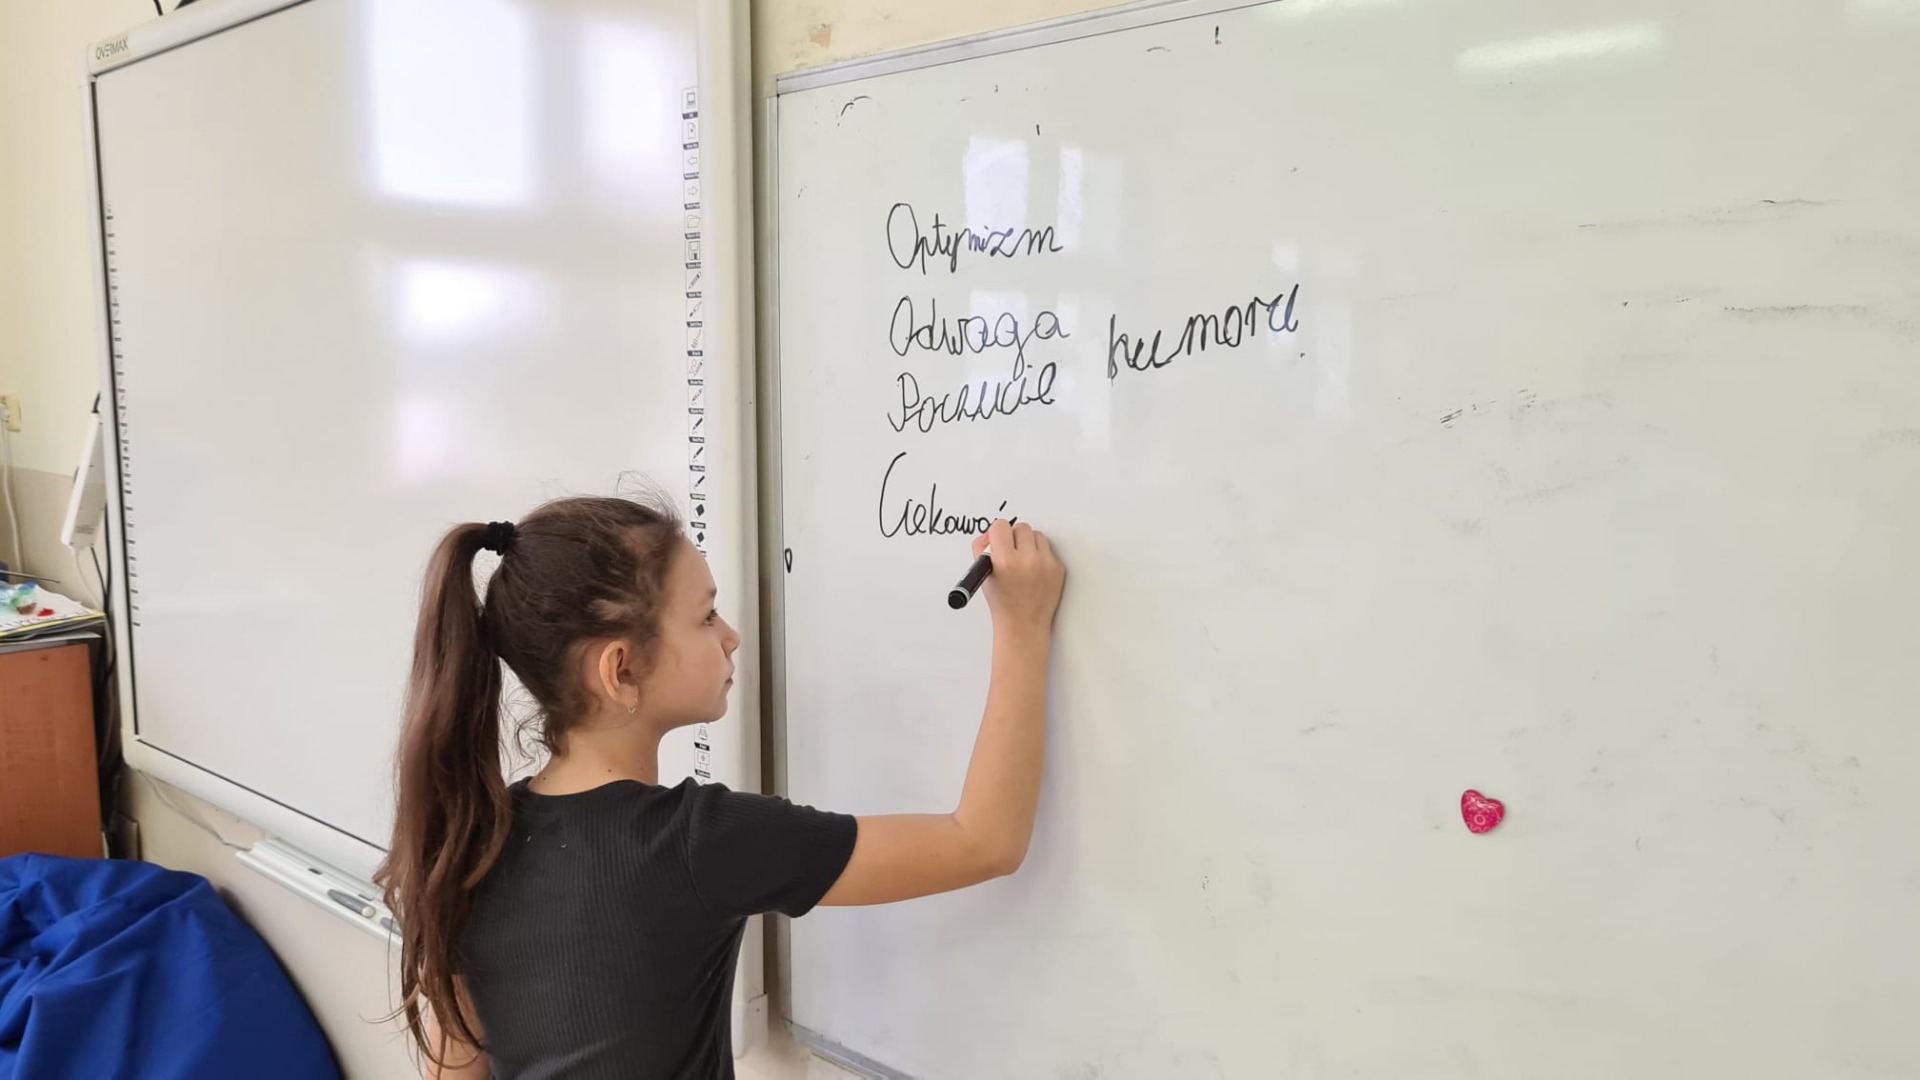 OVERMAX
Optymizm
Odwaga
Poczucie humoru
Ciekawoś